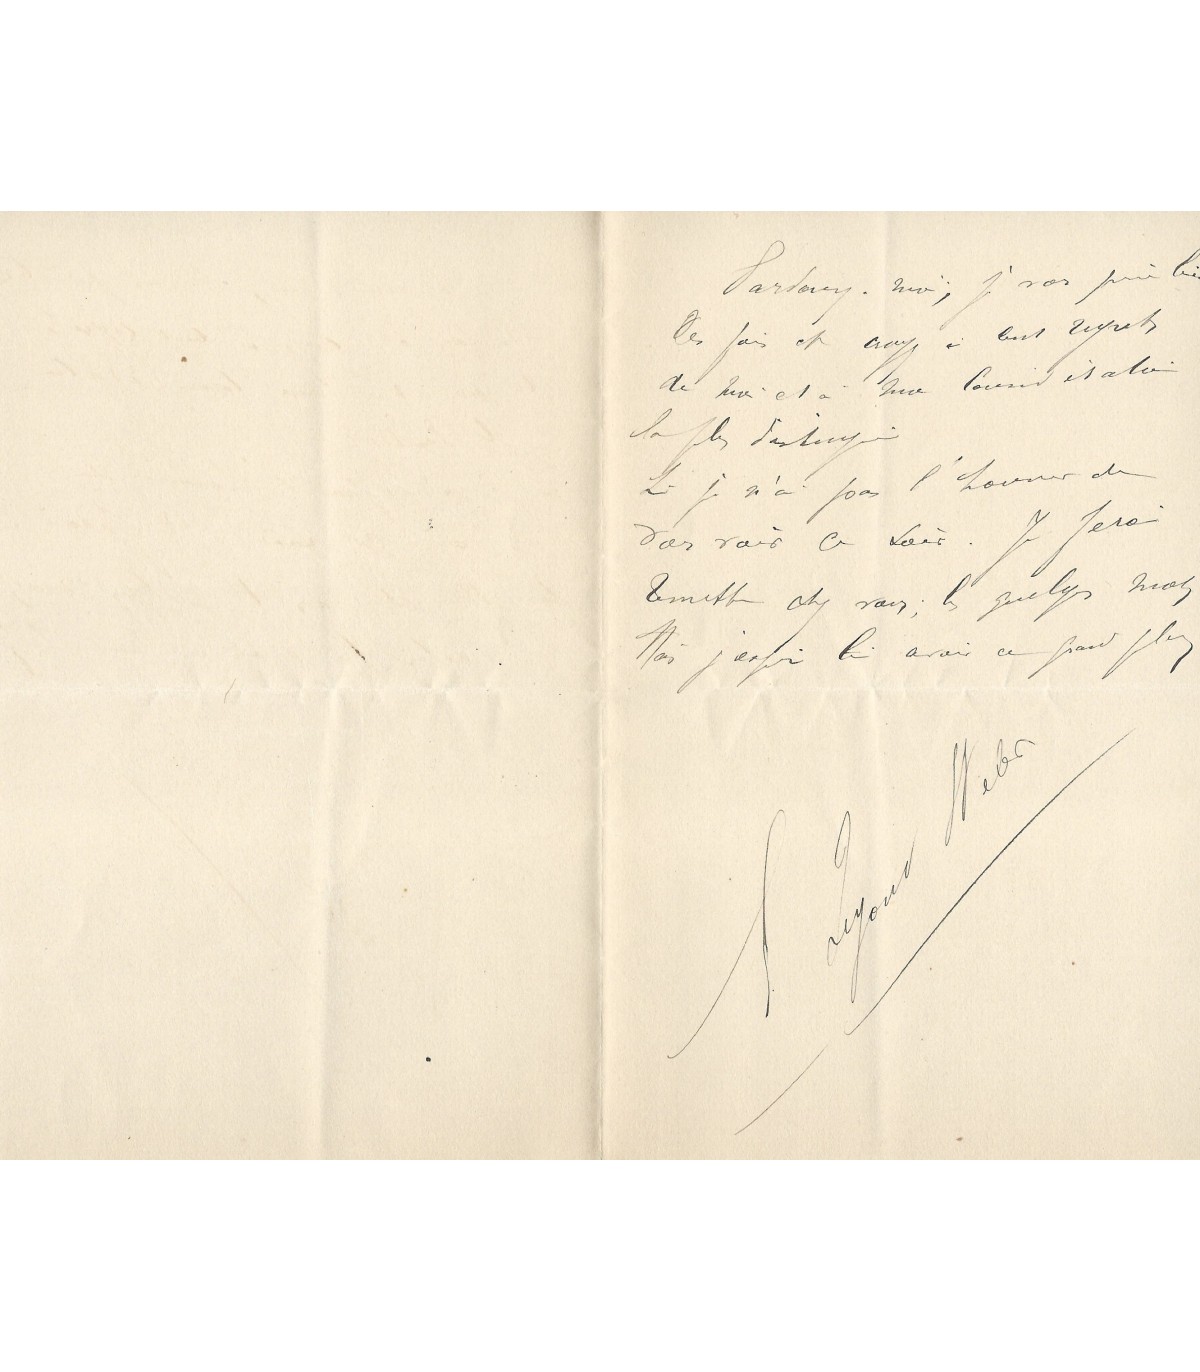 Pardonnez-moi, je vous prie bien
des fois et croyez à tout regrets
de moi et à ma considération
la plus distinguée
Si je n'ai pas l'honneur de
vous voir ce soir. Je ferai
remettre chez vous, les quelques mots
Mais j'espère bien avoir ce grand plaisir
Segond Weber